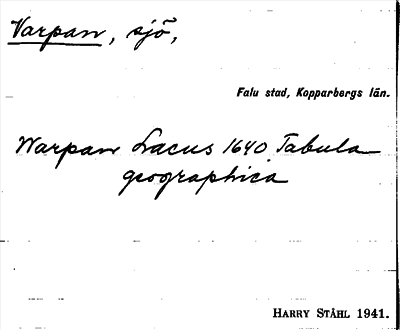 Varpan, sjö,
Falu stad, Kopparbergs län.
Warpan Lacus 1640 Tabula
geographica
HARRY STÅHL 1941.